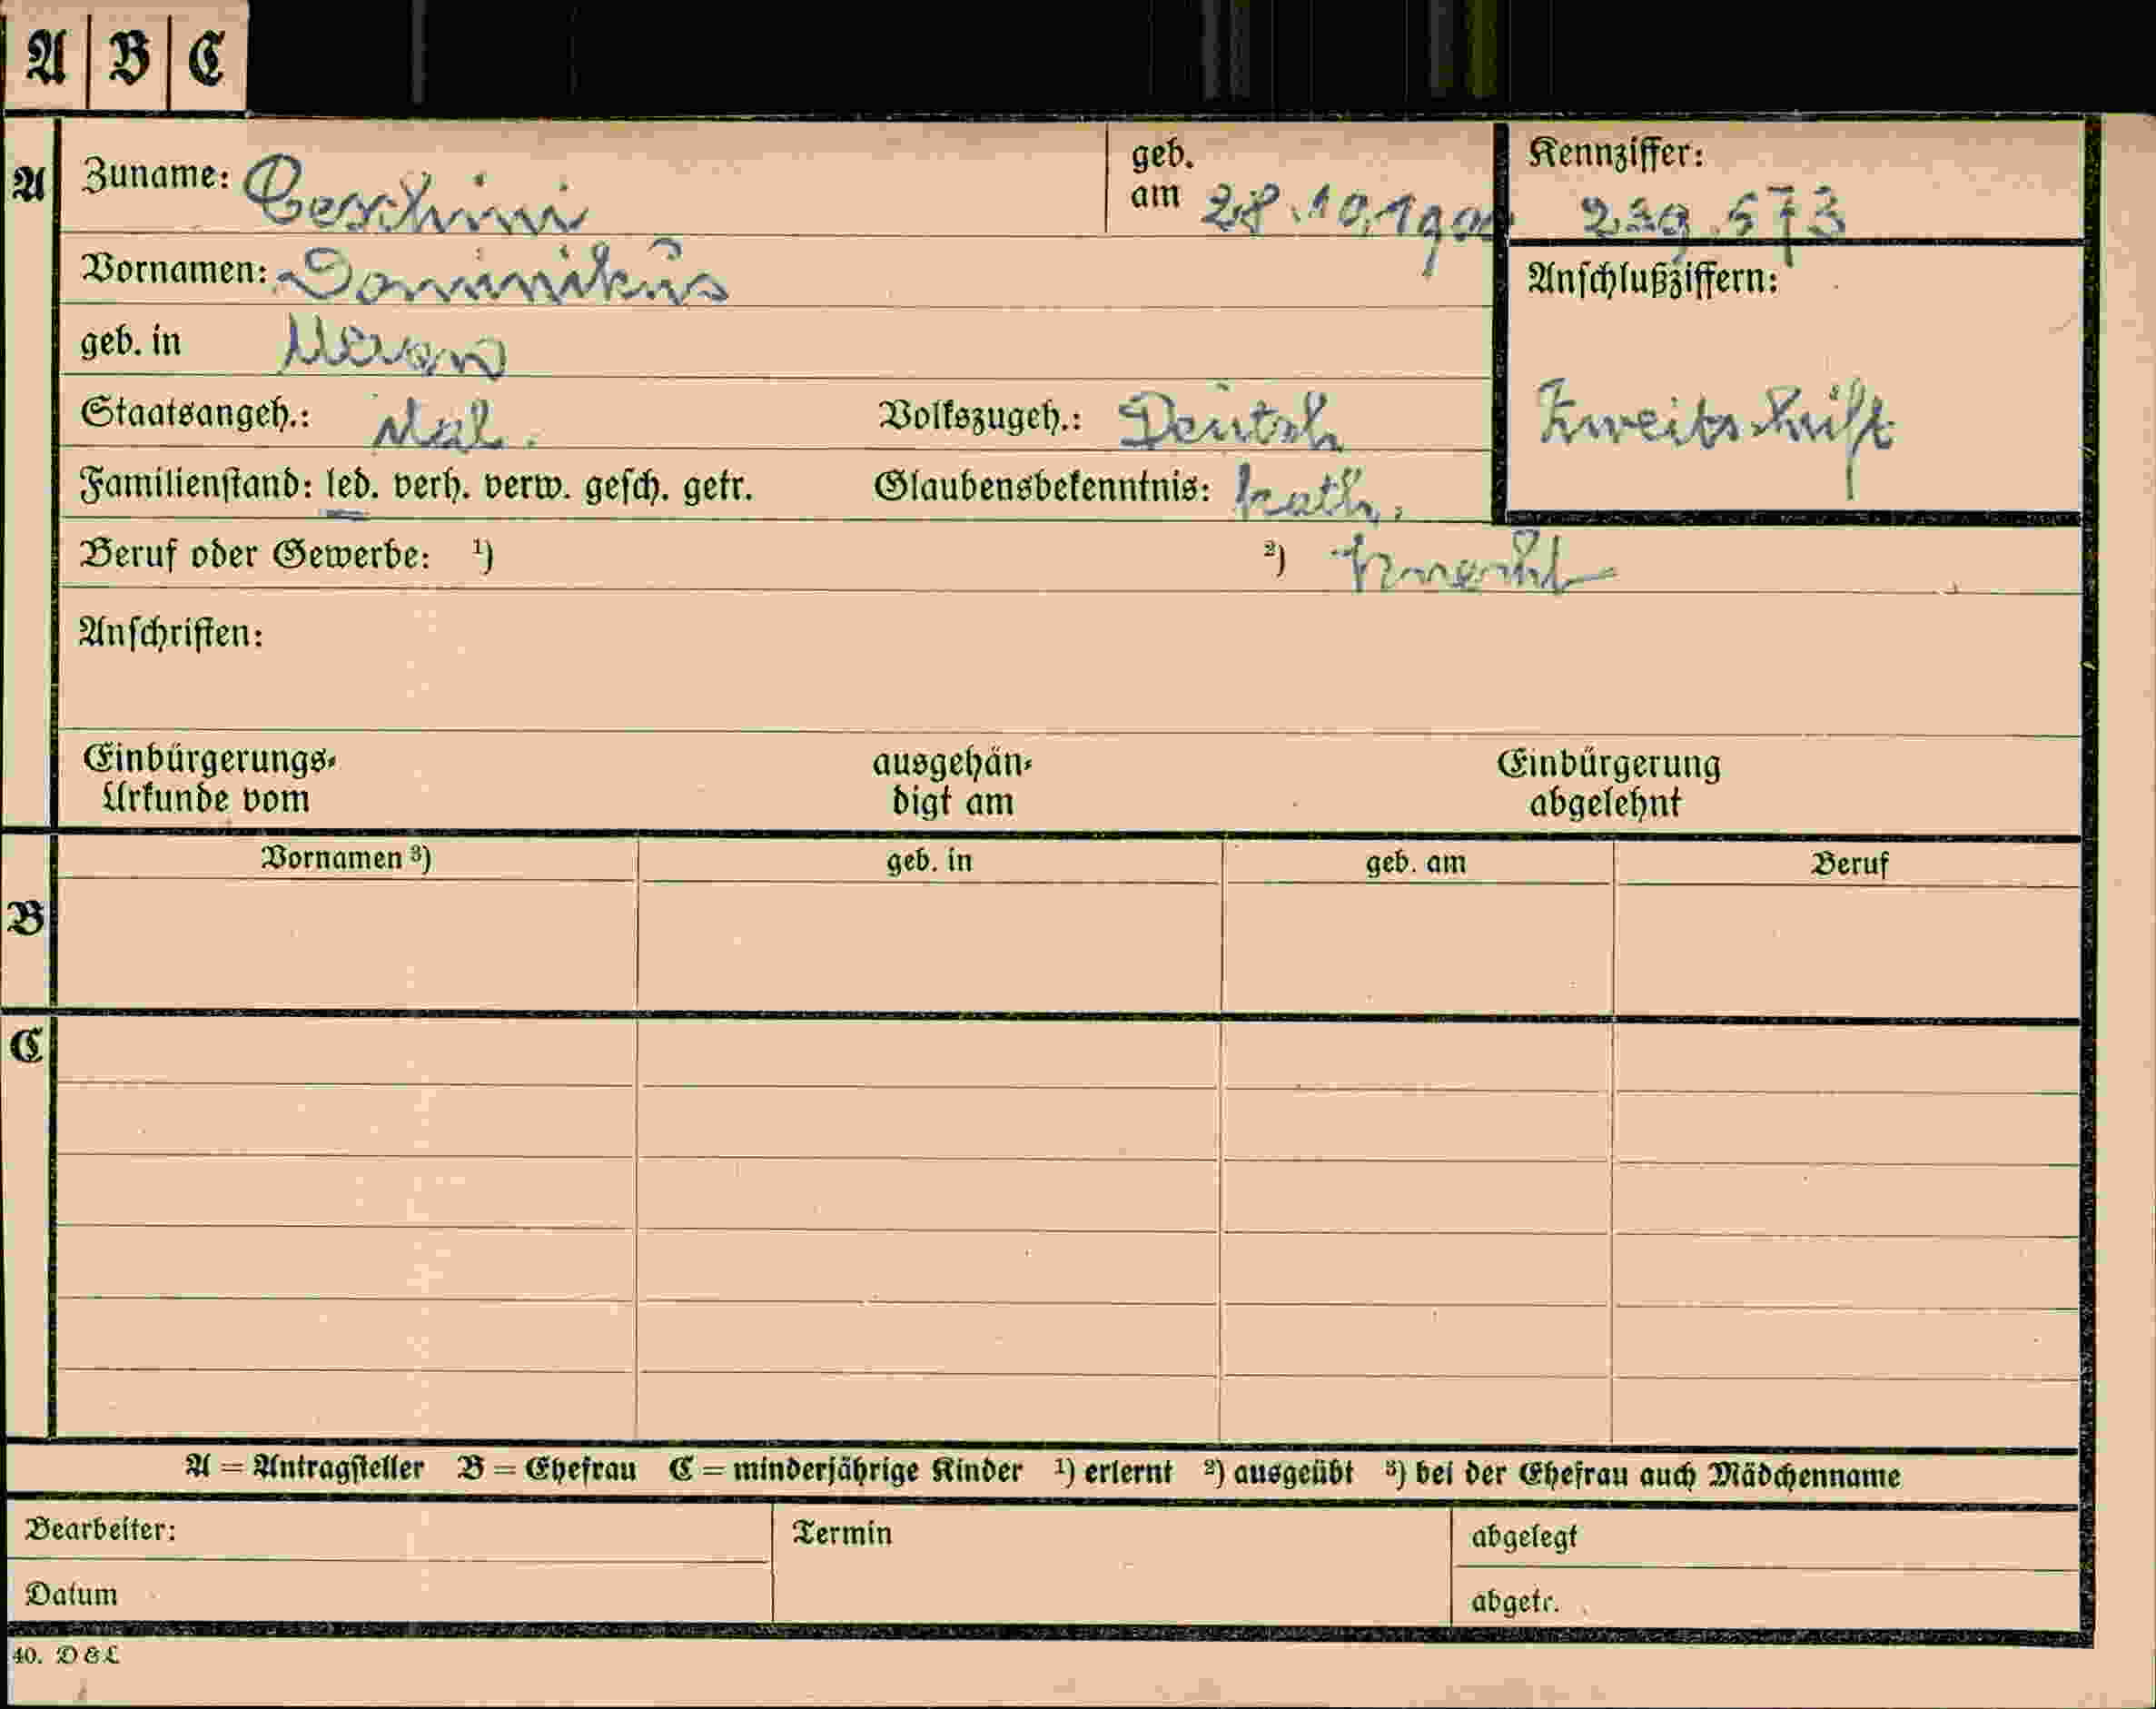 A B C
A
Zuname: Ceschini
geb. am 28.10.190
Kennziffer: 229.573
Vornamen: Dominikus
Anschlußziffern:
geb. in Meran
Zweitschrift
Staatsangeh.: Ital. Volkszugeh.: Deutsch
Familienstand: led. verh. verw. gesch. getr. Glaubensbekenntnis: kath.
Beruf oder Gewerbe: 1) 2) Knecht
Anschriften:
Einbürgerungs-
Urkunde vom
ausgehän-
digt am
Einbürgerung
abgelehnt
B
Vornamen 3) geb. in geb. am Beruf
C
A = Antragsteller B = Ehefrau C = minderjährige Kinder 1) erlernt 2) ausgeübt 3) bei der Ehefrau auch Mädchenname
Bearbeiter: Termin abgelegt
Datum abgetr.
40. D & L